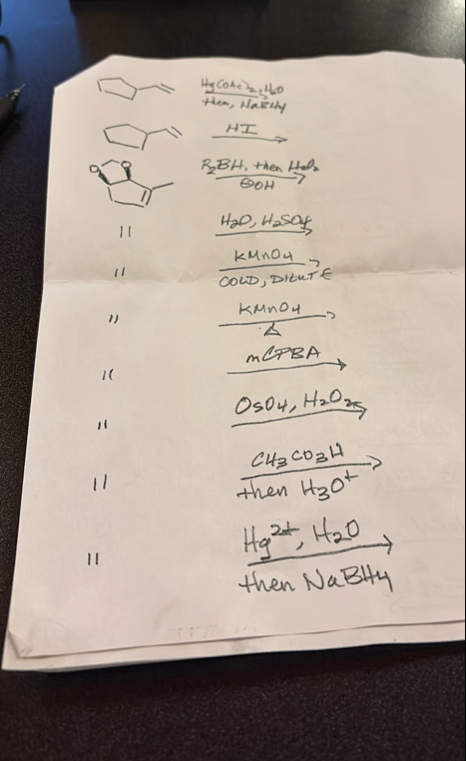 Hg(OAc)2, H2O
then, NaBH4
HI
O O
R2BH, then H2O2
⊖OH
" H2O, H2SO4
" KMnO4
COLD, DILUTE
" KMnO4
Δ
" mCPBA
" OsO4, H2O2
" CH3CO3H
then H3O+
" Hg2+, H2O
then NaBH4